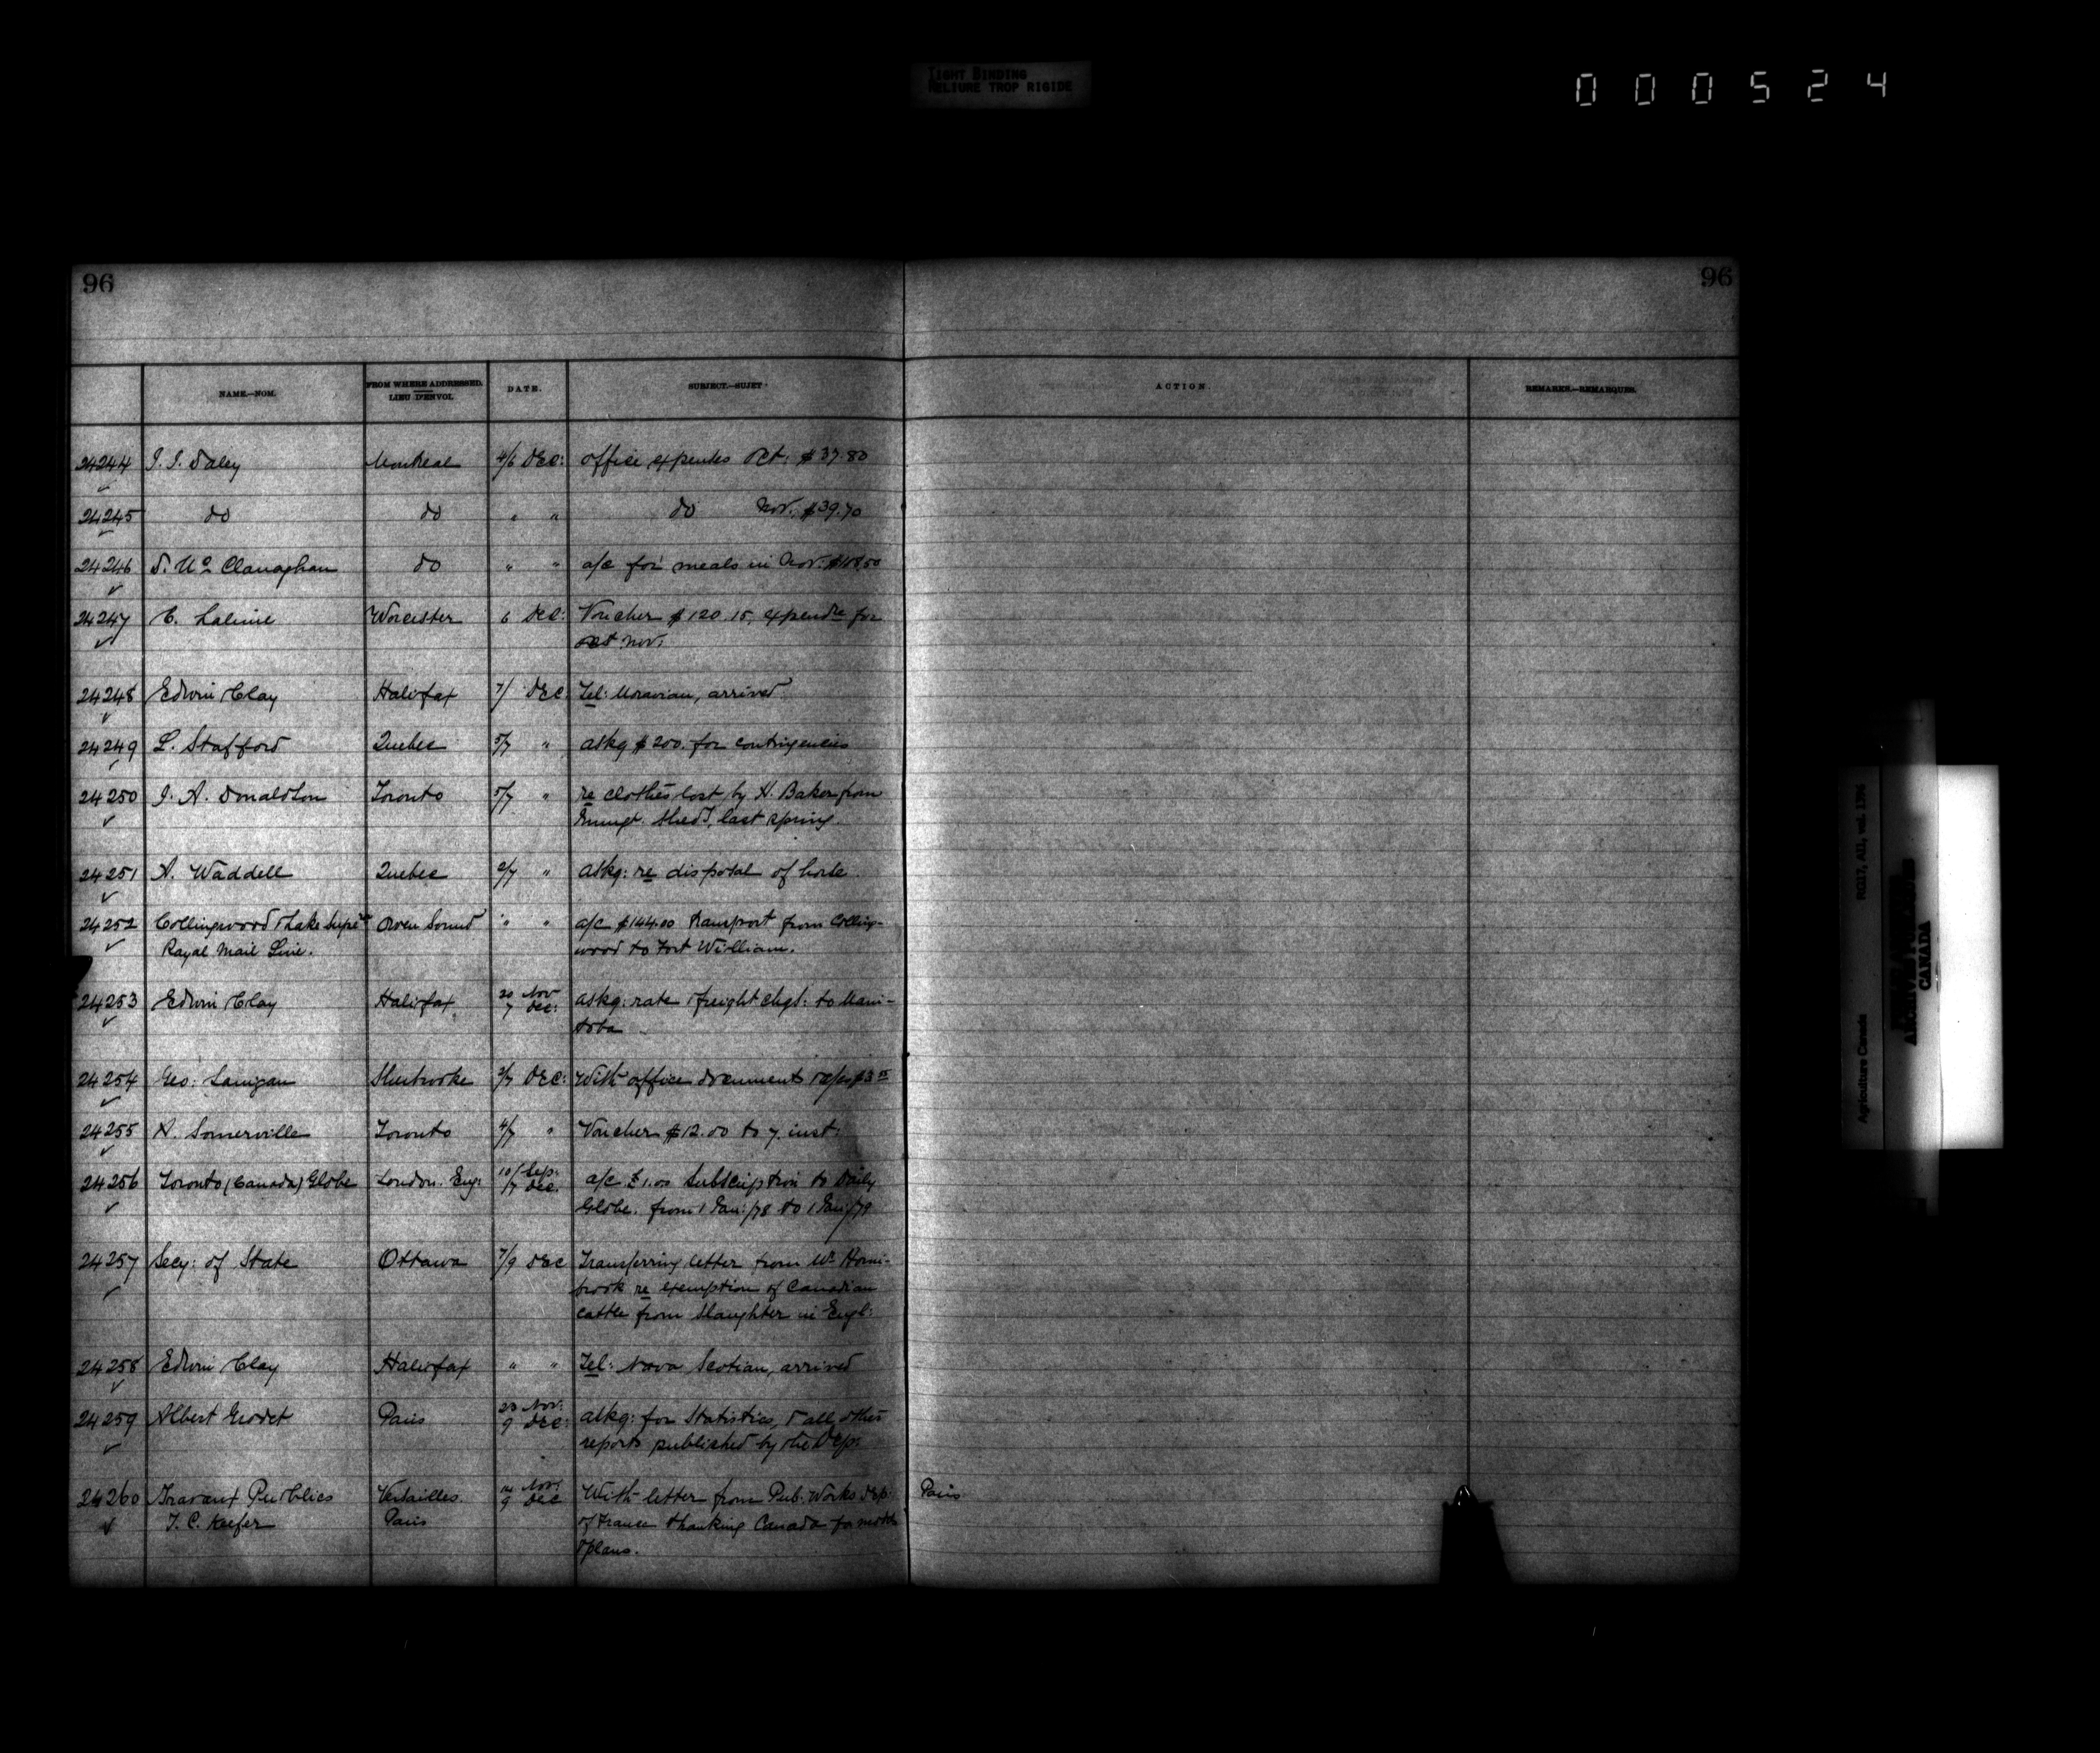 TIGHT BINDING
RELIURE TROP RIGIDE
000524
96 96
NAME.—NOM. FROM WHERE ADDRESSED. LIEU D'ENVOI. DATE. SUBJECT.—SUJET. ACTION. REMARKS.—REMARQUES.
24244 J. J. Daley Montreal 4/6 Dec: office expenses Oct. $37.80
24245 do do " " do Nov. $39.70
24246 D. Mc Clanaghan do " " a/c for meals in Nov.
24247 C. Lalime Worcester 6 Dec: Voucher $120.15, expendre for
Nov.
24248 Edwin Clay Halifax 7/ Dec: Tel: Moravian, arrived
24249 L. Stafford Quebec 5/7 " askg $200. for contingencies
24250 J. A. Donaldson Toronto 5/7 " re clothes lost by H. Baker from
Immigt. Shed, last spring.
24251 A. Waddell Quebec 2/7 " askg: re disposal of horse
24252 Collingwood & Lake Supr Owen Sound " " a/c $144.00 transport from Colling-
Royal Mail Line. wood to Fort William.
24253 Edwin Clay Halifax 20 Nov askg: rate freight chgs: to Mani-
7 Dec: toba
24254 Geo: Lanigan Sherbrooke Dec: With office documents
24255 A. Somerville Toronto 4/7 " Voucher $12.00 to 7. inst:
24256 Toronto (Canada) Globe London. Eng: 10/ Sep: a/c £1.00 Subscription to Daily
/7 Dec. Globe. from 1 Jan:/78 to 1 Jan:/79
24257 Secy: of State Ottawa 7/9 Dec Transferring letter from Mr Horni-
brook re exemption of Canadian
cattle from slaughter in Engl:
24258 Edwin Clay Halifax " " Tel: Nova Scotian, arrived
24259 Albert Grodet Paris 23 Nov: askg: for Statistics, & all other
9 Dec: reports published by the Dep:
24260 Travaux Publics Versailles Nov: With letter from Pub. Works Dep: Paris
T. C. Keefer Paris 9 Dec of France thanking Canada for
& plans.
Agriculture Canada RG17, AII, vol. 1396
CANADA